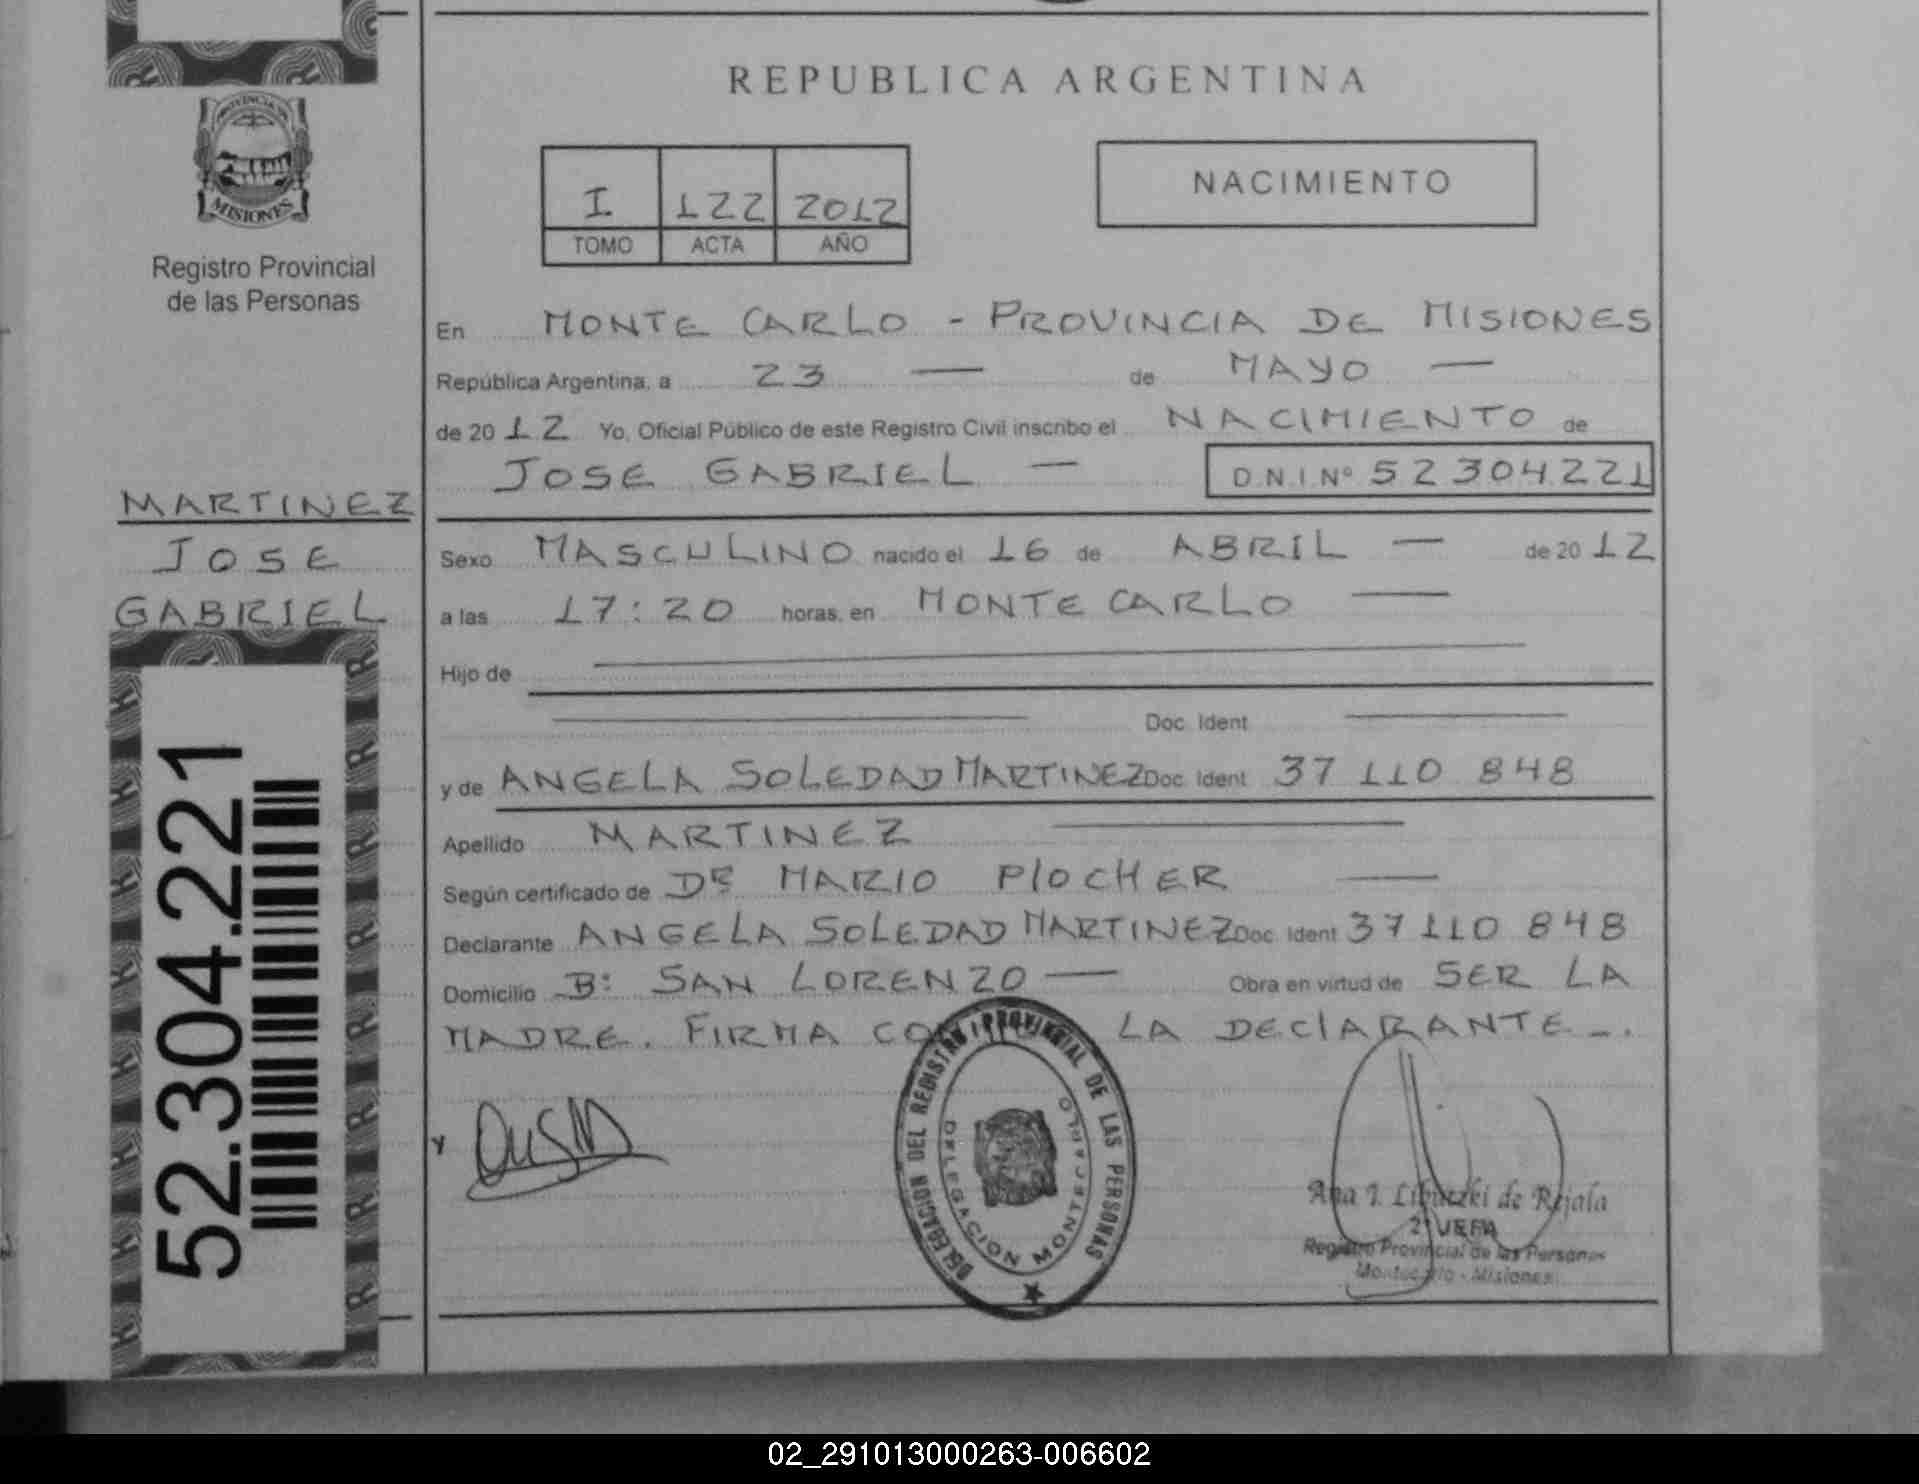 REPUBLICA ARGENTINA
PROVINCIA DE
MISIONES
Registro Provincial
de las Personas
I 122 2012
TOMO ACTA AÑO
NACIMIENTO
En MONTE CARLO - PROVINCIA DE MISIONES
República Argentina, a 23 — de MAYO —
de 2012 Yo, Oficial Público de este Registro Civil inscribo el NACIMIENTO de
JOSE GABRIEL — D.N.I.Nº 52304221
MARTINEZ
JOSE
GABRIEL
Sexo MASCULINO nacido el 16 de ABRIL — de 2012
a las 17:20 horas, en MONTE CARLO —
Hijo de
Doc. Ident
y de ANGELA SOLEDAD MARTINEZ Doc. Ident 37 110 848
Apellido MARTINEZ
Según certificado de DR MARIO PIOCHER —
Declarante ANGELA SOLEDAD MARTINEZ Doc. Ident 37 110 848
Domicilio B: SAN LORENZO — Obra en virtud de SER LA
MADRE. FIRMA LA DECLARANTE -.
52.304.221
DELEGACION DEL REGISTRO PROVINCIAL DE LAS PERSONAS
DELEGACION MONTECARLO
Ana I. de Rejala
2º JEFA
Registro Provincial de las Personas
Montecarlo - Misiones
02_291013000263-006602